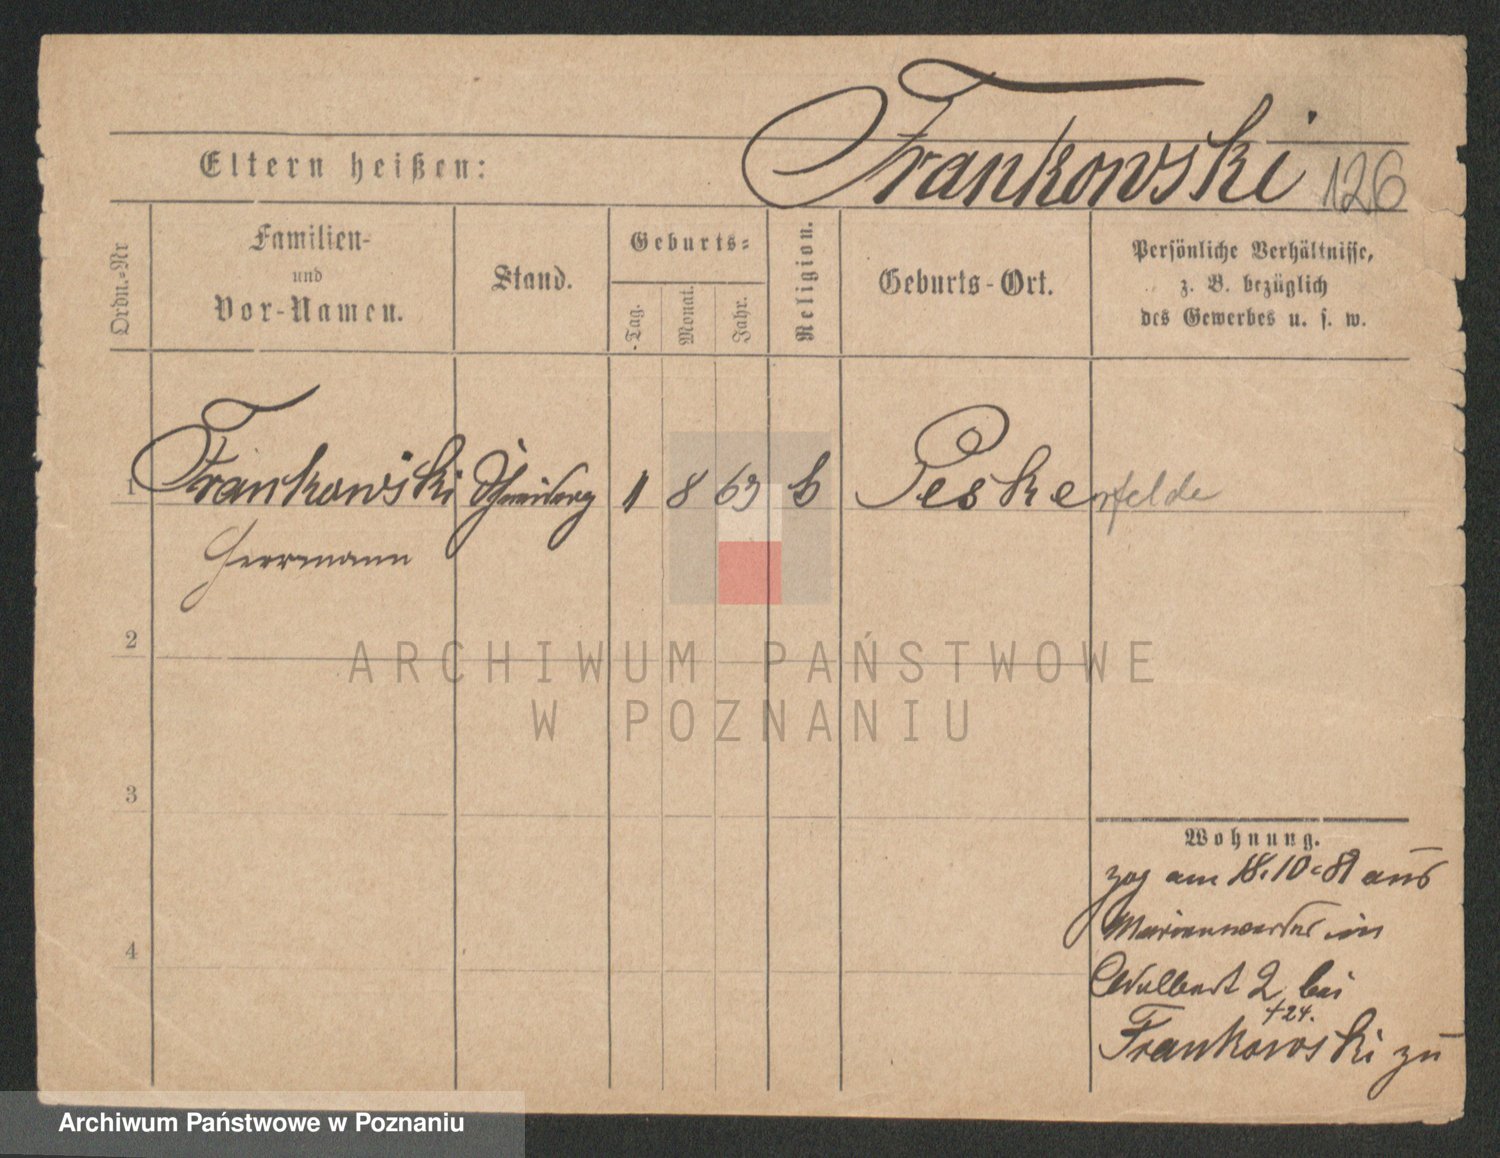 Frankowski 126
Eltern heißen:
Ordn.-Nr
Familien-
und
Vor-Namen.
Stand.
Geburts-
Tag.
Monat.
Jahr.
Religion.
Geburts-Ort.
Persönliche Verhältnisse,
z. B. bezüglich
des Gewerbes u. s. w.
1 Frankowski 1 8 63 k Peskenfelde
Herrmann
2
3
4
Wohnung.
zog am 18.10. 81 aus
Marienwerder in
2 bei
+24.
Frankowski zu
ARCHIWUM PAŃSTWOWE
W POZNANIU
Archiwum Państwowe w Poznaniu